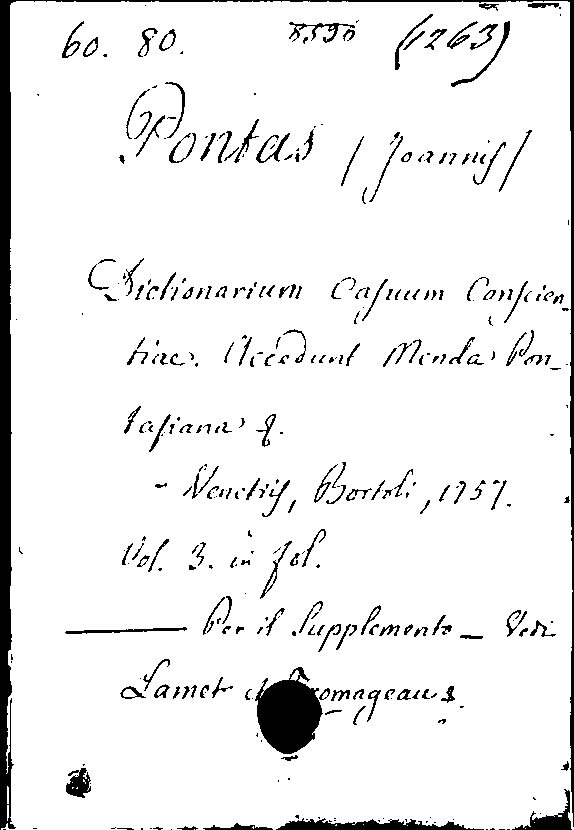 60. 80. 8590 (1263)
Pontas / Joannis /
Dictionarium Casuum Conscien-
tiae. Accedunt Menda Pon-
tasiana &.
- Venetiis, Bortoli, 1757.
Vol. 3. in fol.
—— Per il Supplemento — Vedi
Lamet et Fromageau &.